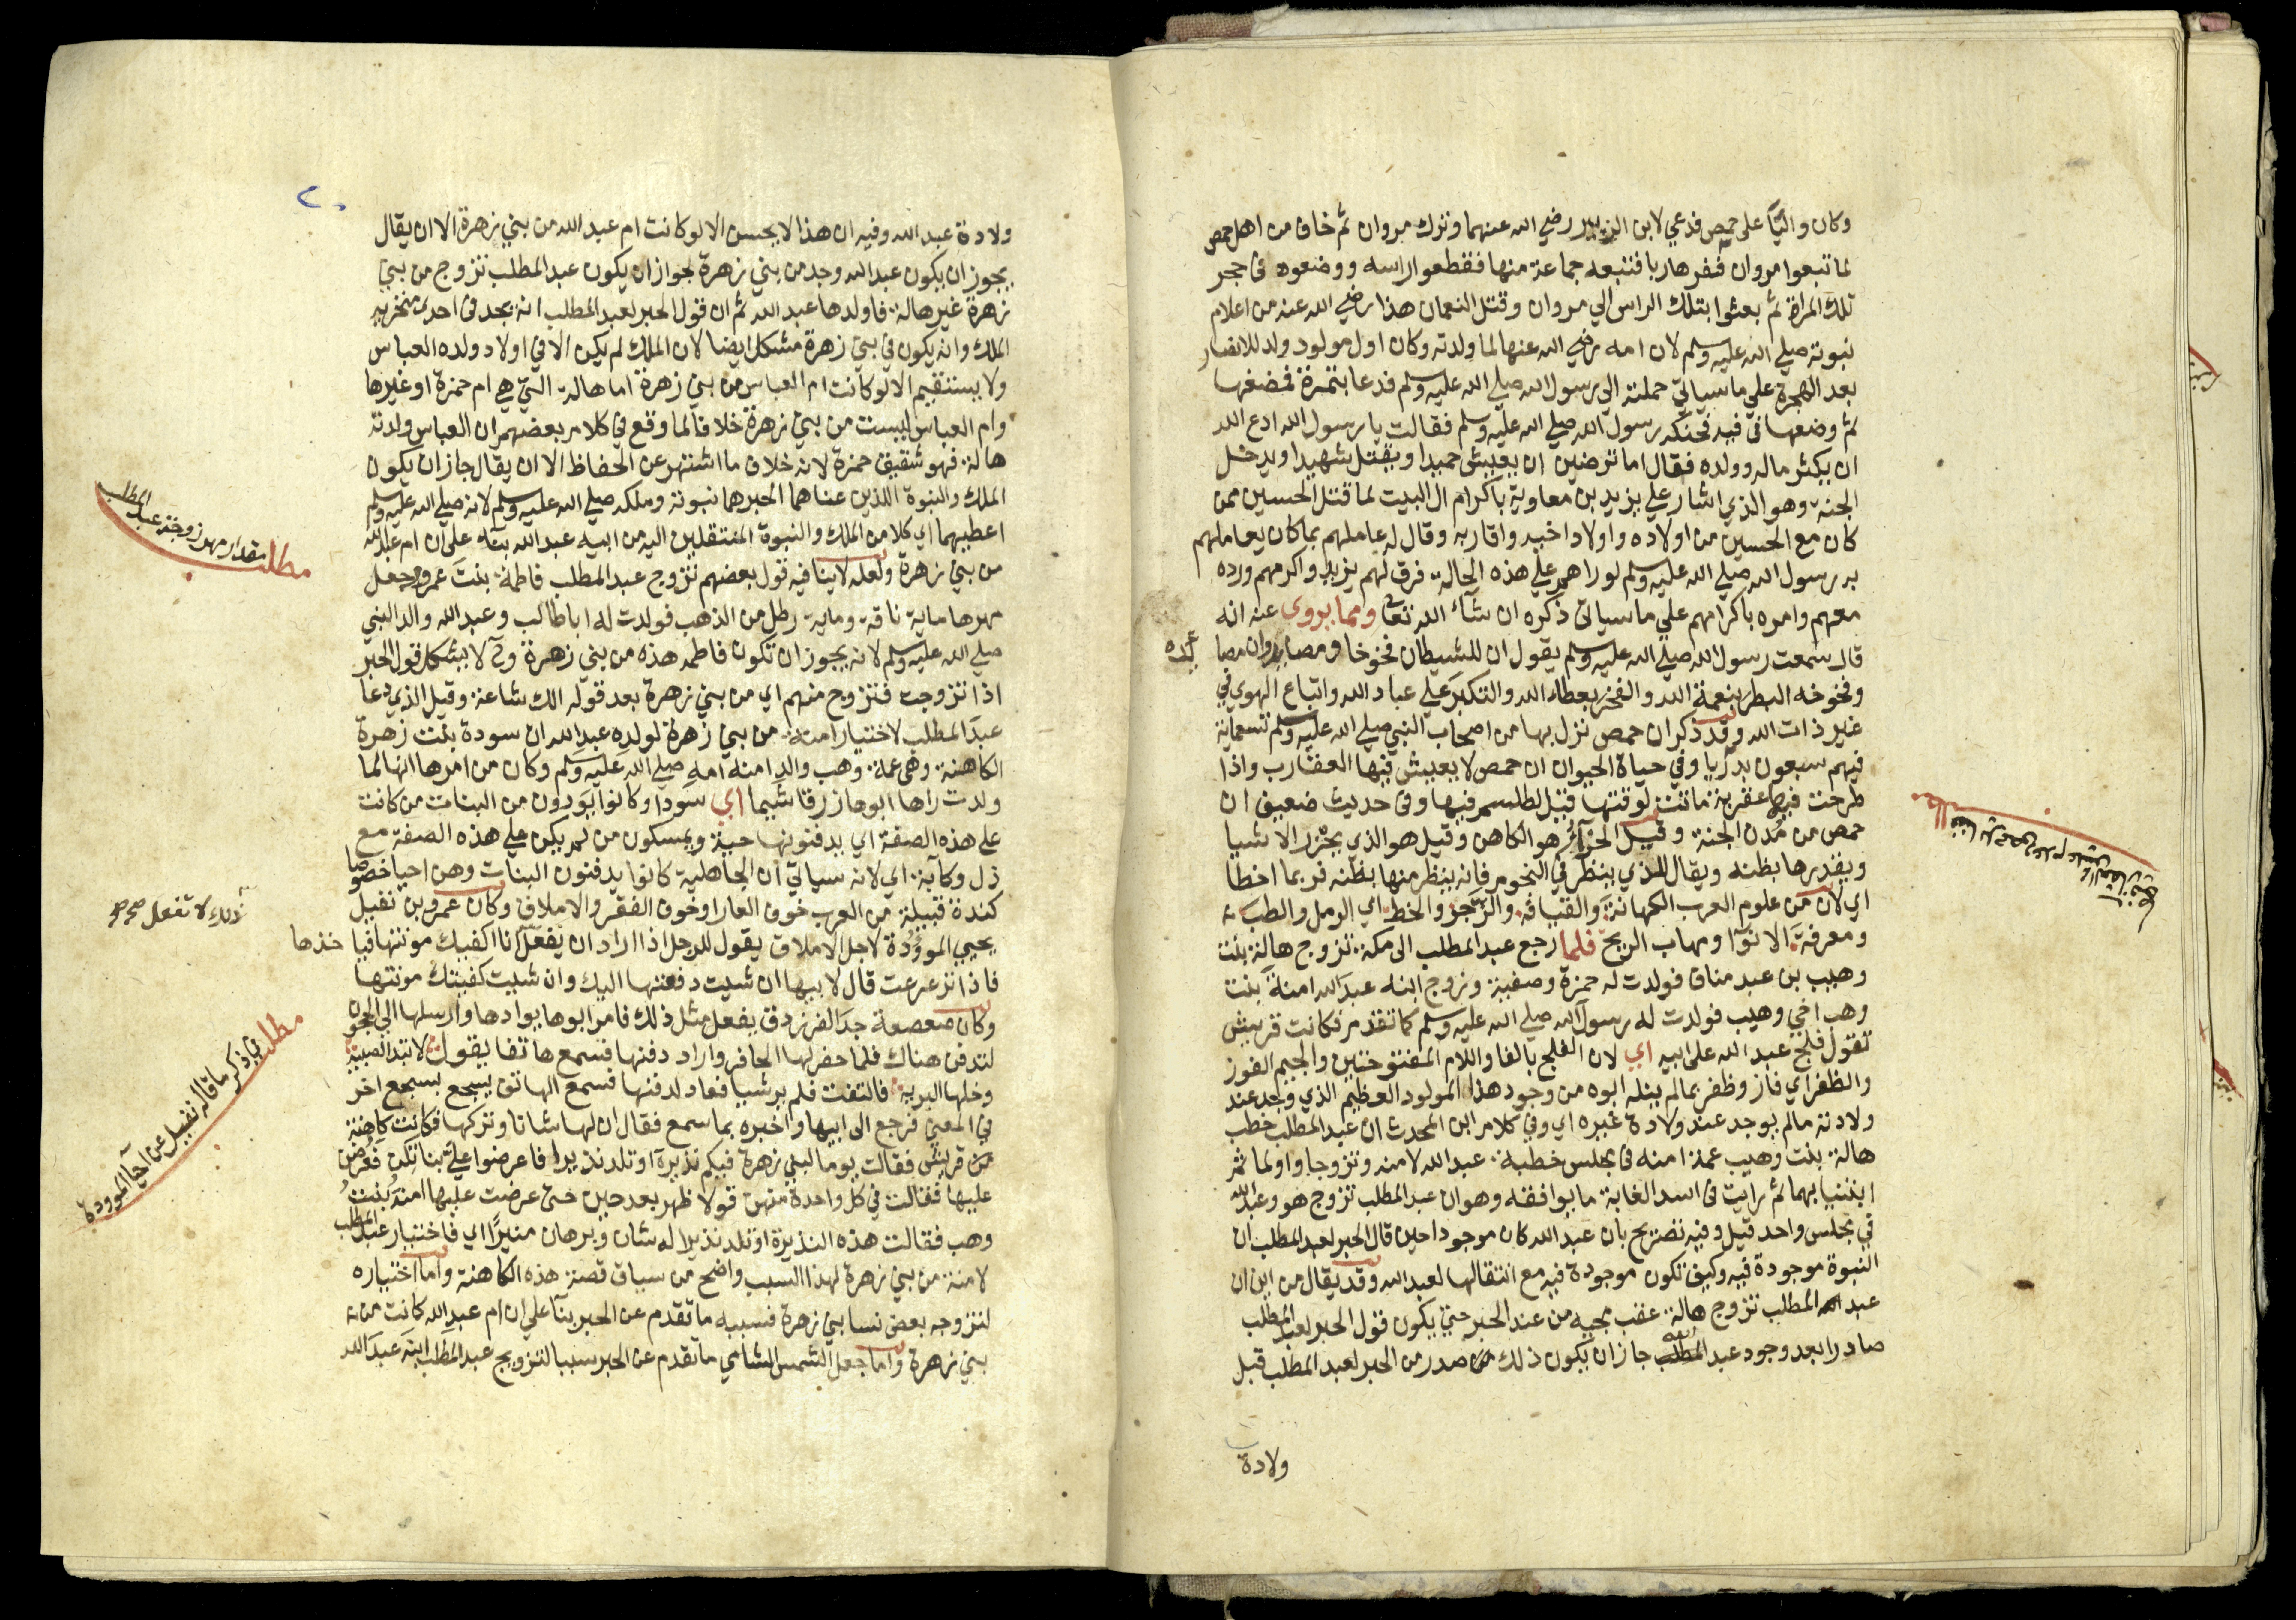 وكان واليًا على حمص فدعي لابن الزبير رضي الله عنهما وترك مروان ثم خاف من اهل حمص
لما تبعوا مروان ففر هاربا فتبعه جماعة منها فقطعوا راسه ووضعوه في حجر
تلك المراة ثم بعثوا بتلك الراس الي مروان وقتل النعمان هذا رضي الله عنه من اعلام
نبوته صلي الله عليه وسلم لان امه رضي الله عنها لما ولدته وكان اول مولود ولد للانصار
بعد الهجرة علي ما سياتي حملته الي رسول الله صلي الله عليه وسلم فدعا بتمرة فمضغها
ثم وضعها في فيه فحنكه رسول الله صلي الله عليه وسلم فقالت يا رسول الله ادع الله
ان يكثر ماله وولده فقال اما ترضين ان يعيش حميدا ويقتل شهيدا ويدخل
الجنة وهو الذي اشار علي يزيد بن معاوية باكرام ال البيت لما قتل الحسين ممن
كان مع الحسين من اولاده واولاد اخيه واقاربه وقال له عاملهم بما كان يعاملهم
به رسول الله صلي الله عليه وسلم لو راهم علي هذه الحالة فرق لهم يزيد واكرمهم ورده
معهم وامره باكرامهم علي ما سياتي ذكره ان شآء الله تعالى ومما يروى عنه انه
قال سمعت رسول الله صلي الله عليه وسلم يقول ان للشيطان فخوخا ومصايد وان مصا
يده
وفخوخه البطر بنعمة الله والفخر بعطاء الله والتكبر علي عباد الله واتباع الهوي في
غير ذات الله وقد ذكر ان حمص نزل بها من اصحاب النبي صلي الله عليه وسلم تسعماية
فيهم سبعون بدريا وفي حياة الحيوان ان حمص لا يعيش فيها العقارب واذا
طرحت فيها عقربة ماتت لوقتها قيل لطلسم فيها وفي حديث ضعيف ان
حمص من مُدن الجنة وقيل الحزآء هو الكاهن وقيل هو الذي يحزر الاشيا
ويقدرها بظنه ويقال للذي ينظر في النجوم فانه ينظر منها بظنه فربما اخطا
اي لان من علوم العرب الكهانة والقيافة والزجر والخط اي الرمل والطب
ومعرفة الانوآ ومهاب الريح فلما رجع عبد المطلب الى مكة تزوج هالة بنت
وهيب بن عبد مناف فولدت له حمزة وصفية وزوج ابنه عبد الله امنة بنت
وهب اخي وهيب فولدت له رسول الله صلي الله عليه وسلم كما تقدم فكانت قريش
تقول فلج عبد الله على ابيه اي لان الفلج بالفا واللام المفتوحتين والجيم الفوز
والظفر اي فاز وظفر بما لم ينله ابوه من وجود هذا المولود العظيم الذي وجد عند
ولادته ما لم يوجد عند ولادة غيره اي وفي كلام ابن المحدث ان عبد المطلب خطب
هالة بنت وهيب عمة امنه في مجلس خطبة عبد الله لامنه وتزوجا واولما ثم
ابتنيا بهما ثم رايت في اسد الغابة ما يوافقه وهو ان عبد المطلب تزوج هو وعبد الله
في مجلس واحد قيل وفيه تصريح بان عبد الله كان موجودا حين قال الحبر لعبد المطلب ان
النبوة موجودة فيه وكيف تكون موجودة فيه مع انتقالها لعبد الله وقد يقال من اين ان
عبد المطلب تزوج هالة عقب مجيه من عند الحبر حتي يكون قول الحبر لعبد المطلب
صادرا بعد وجود عبد الله جاز ان يكون ذلك صدر من الحبر لعبد المطلب قبل
ولادة
ولادة عبد الله وفيه ان هذا لا يحسن الا لو كانت ام عبد الله من بني زهرة الا ان يقال
يجوز ان يكون عبد الله وجد من بني زهرة لجواز ان يكون عبد المطلب تزوج من بني
زهرة غير هالة فاولدها عبد الله ثم ان قول الحبر لعبد المطلب انه يجد في احدى منخريه
الملك وانه يكون في بني زهرة مشكل ايضا لان الملك لم يكن الا في اولاد ولده العباس
ولا يستقيم الا لو كانت ام العباس من بني زهرة اما هالة التي هي ام حمزة او غيرها
وام العباس ليست من بني زهرة خلافا لما وقع في كلام بعضهم ان العباس ولدته
هالة فهو شقيق حمزة لانه خلاف ما اشتهر عن الحفاظ الا ان يقال جاز ان يكون
الملك والنبوة اللذين عناهما الحبر هما نبوته وملكه صلي الله عليه وسلم لانه صلي الله عليه وسلم
اعطيهما اي كلا من الملك والنبوة المنتقلين اليه من ابيه عبد الله بنآء على ان ام عبد الله
مطلب مقدار مهر زوجة عبد المطلب
من بني زهرة ولعله لا ينافيه قول بعضهم تزوج عبد المطلب فاطمة بنت عمرو وجعل
مهرها ماية ناقة وماية رطل من الذهب فولدت له ابا طالب وعبد الله والد النبي
صلي الله عليه وسلم لانه يجوز ان تكون فاطمه هذه من بني زهرة وح لا يشكل قول الحبر
اذا تزوجت فتزوج منهم اي من بني زهرة بعد قوله الك شاعة وقيل الذي دعا
عبد المطلب لاختيار امنة من بني زهرة لولده عبد الله ان سودة بنت زهرة
الكاهنة وهي عمة وهب والد امنة امه صلي الله عليه وسلم وكان من امرها انها لما
ولدت راها ابوها زرقا شيما اي سودا وكانوا يودون من البنات من كانت
على هذه الصفة اي يدفنونها حية ويمسكون من لم يكن علي هذه الصفة مع
ذل وكآبة اي لانه سياتي ان الجاهلية كانوا يدفنون البنات وهن احيا خصوصا
كندة قبيلة من العرب خوف العار او خوف الفقر والاملاق وكان عمرو بن نفيل
يحيي الموؤدة لاجل الاملاق يقول للرجل اذا اراد ان يفعل انا اكفيك مونتها فيا خذها
ذلك لا تفعل صح صح
فاذا ترعرعت قال لابيها ان شيت دفعتها اليك وان شيت كفيتك مونتها
وكان صعصعة جد الفرزدق يفعل مثل ذلك فامر ابوها بوادها وارسلها الي الحجون
لتدفن هناك فلما حفر لها الحافر واراد دفنها فسمع هاتفا يقول لا تئد الصبية
مطلب في ذكر ما قاله نفيل عن احيآ الموودة
وخلها البرية فالتفت فلم ير شيا فعاد لدفنها فسمع الهاتف يسجع بسجع اخر
في المعني فرجع الى ابيها واخبره بما سمع فقال ان لها شانا وتركها فكانت كاهنة
من قريش فقالت يوما لبني زهرة فيكم نذيرة او تلد نذيرا فاعرضوا علي بناتكن فعرضن
عليها فقالت في كل واحدة منهن قولا ظهر بعد حين حتى عرضت عليها امنة بنت
وهب فقالت هذه النذيرة او تلد نذيرا له شان وبرهان منير اي فاختيار عبد المطلب
لامنة من بني زهرة لهذا السبب واضح من سياق قصة هذه الكاهنة واما اختياره
لتزوجه بعض نسا بني زهرة فسببه ما تقدم عن الحبر بنآ علي ان ام عبد الله كانت من
بني زهرة واما جعل الشمس الشامي ما تقدم عن الحبر سببا لتزويج عبد المطلب ابنه عبد الله